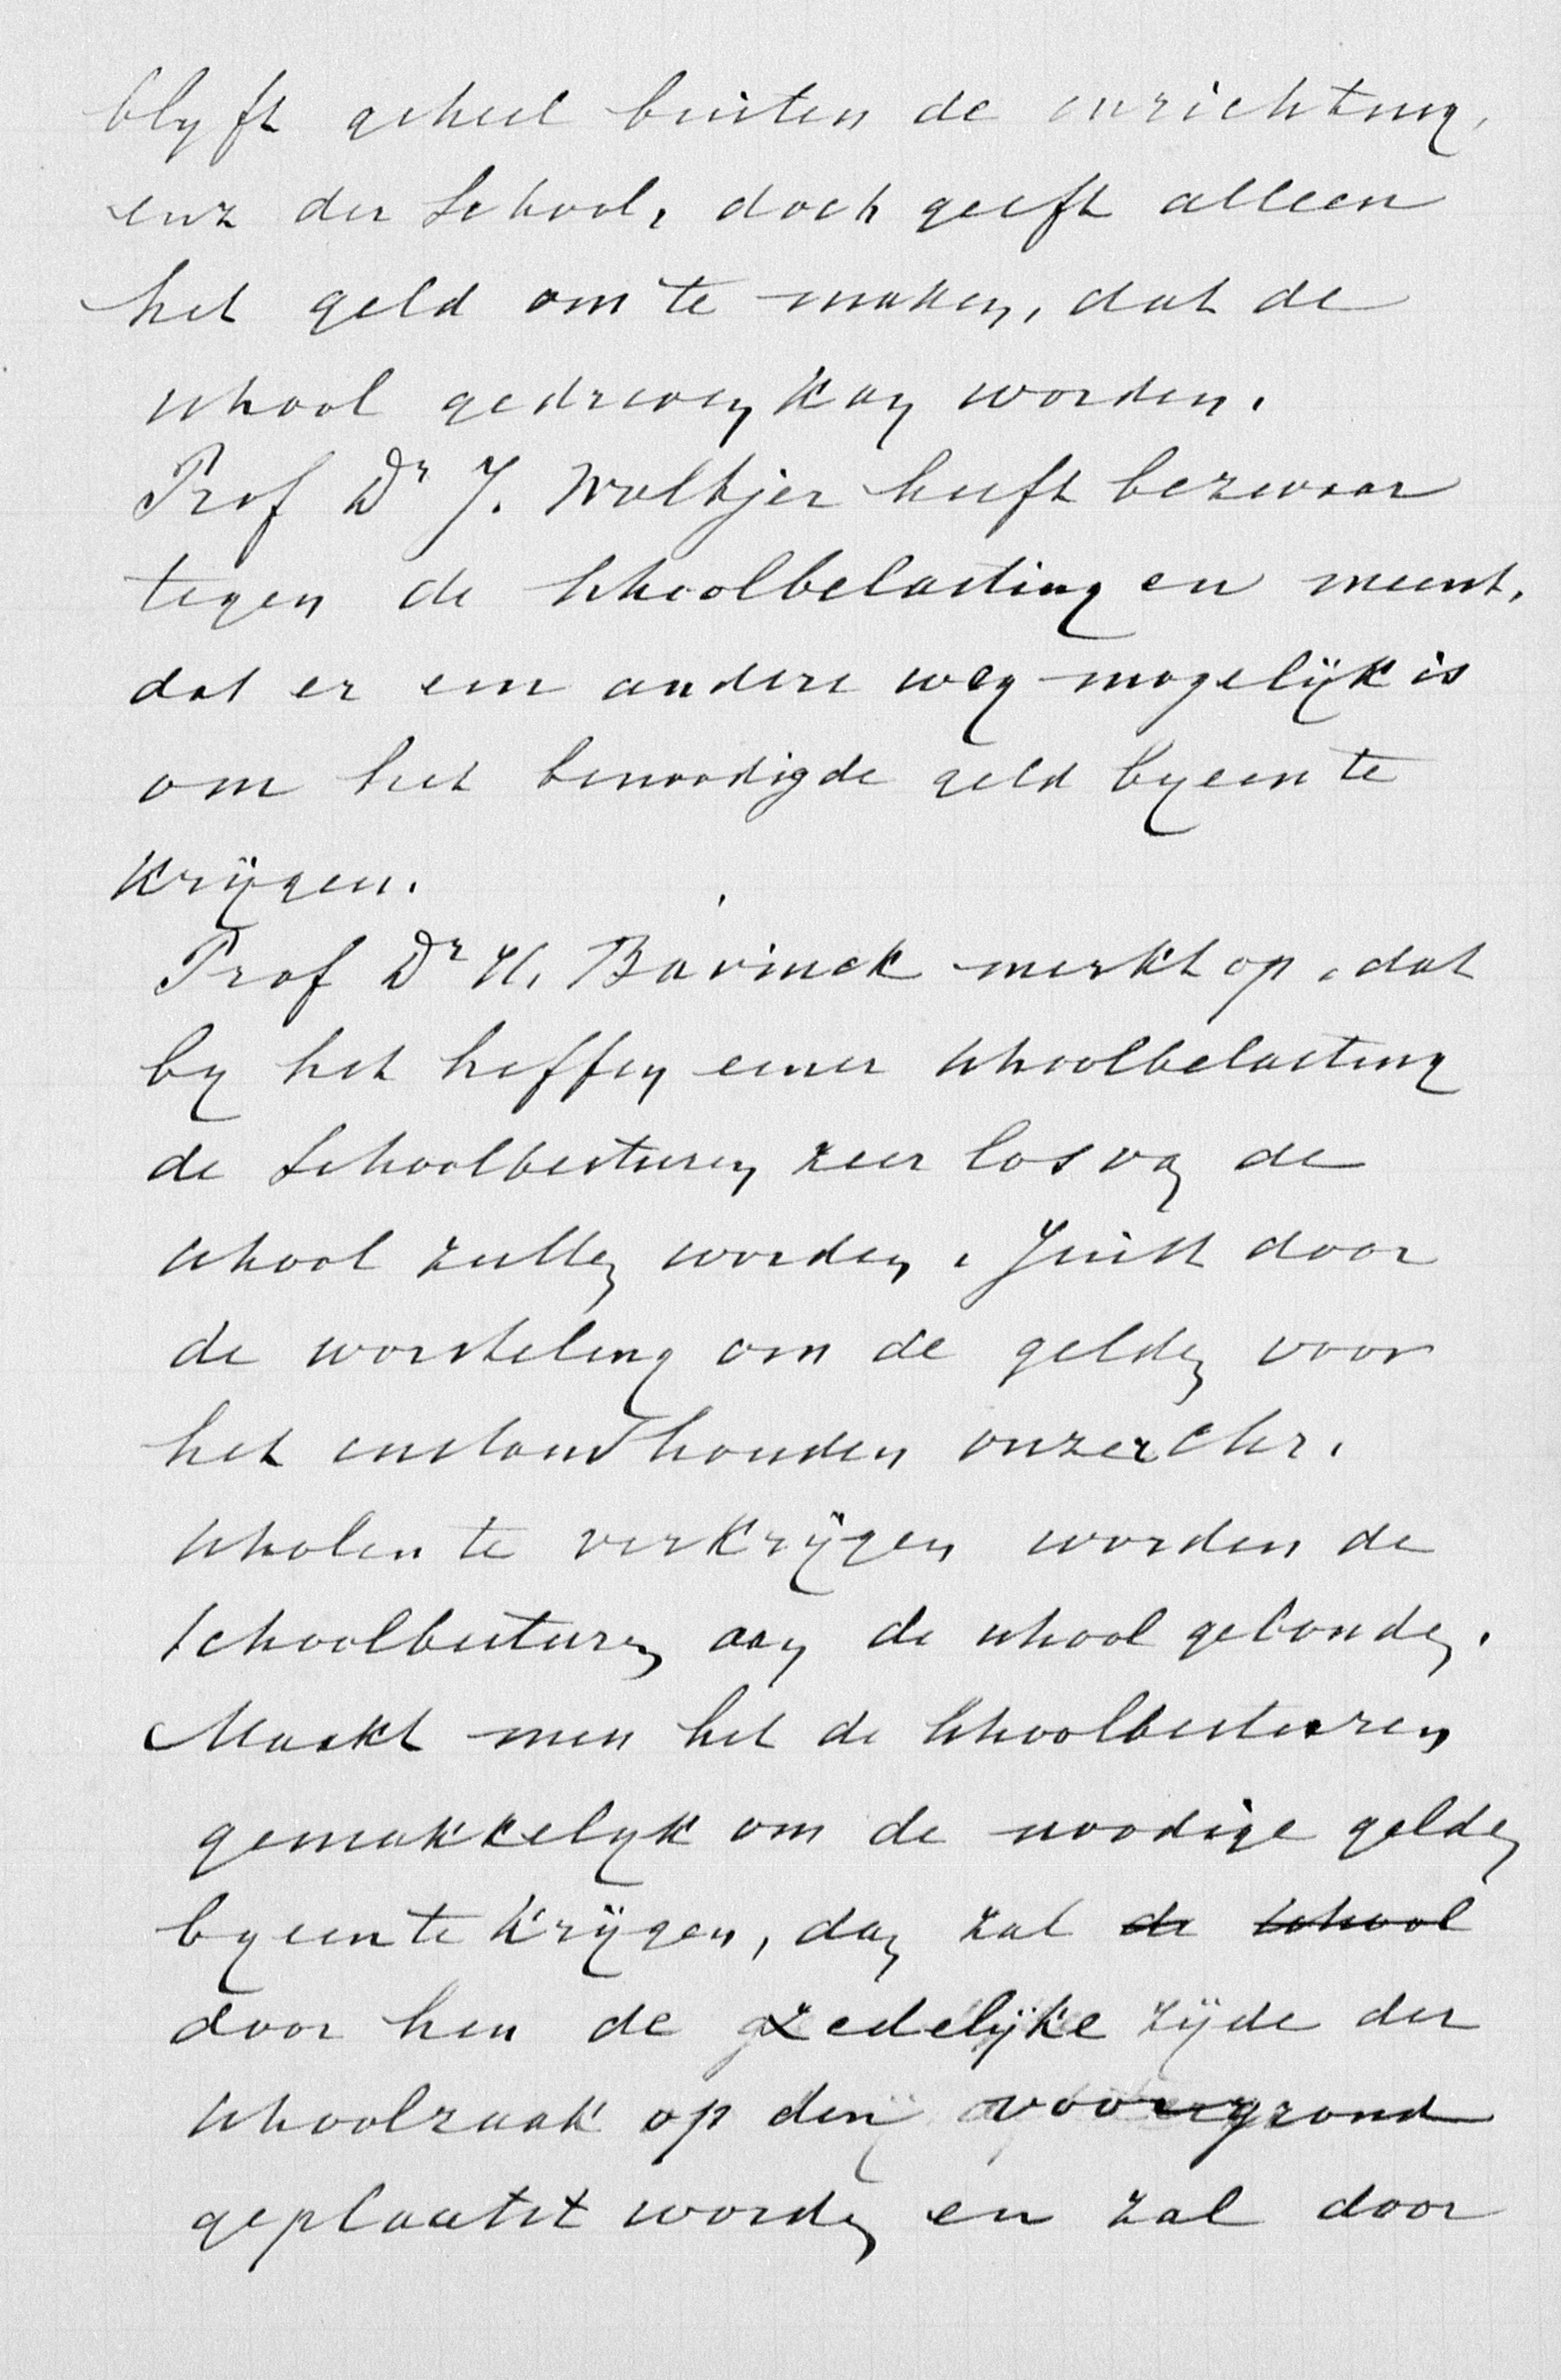 blyft geheel buiten de inrichting,
enz der School, doch geeft alleen
het geld om te maken, dat de
school gedreven kan worden.
Prof Dr J. Woltjer heeft bezwaar
tegen de schoolbelasting en meent,
dat er een andere weg mogelijk is
om het benoodigde geld byeen te
krijgen.
Prof Dr H. Bavinck merkt op, dat
by het heffen eener schoolbelasting
de Schoolbesturen zeer los van de
school zullen worden. Juist door
de worsteling om de gelden voor
het instandhouden onzer Chr.
scholen te verkrijgen worden de
schoolbesturen aan de school gebonden.
Maakt men het de schoolbesturen
gemakkelyk om de noodige gelden
byeen te krijgen, dan zal de school
door hen de zedelijke zijde der
schoolzaak op den voorgrond
geplaatst worden en zal door